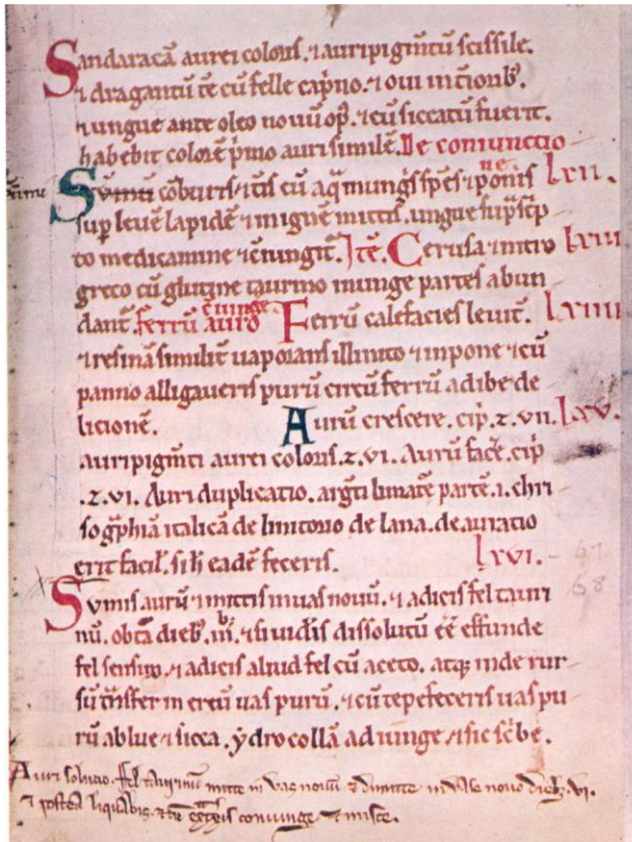 Sandaracã aurei coloris. ⁊ auripigmtũ scissile.
⁊ dragantũ tẽ cũ felle cap̃no. ⁊ oui intĩorib᷒.
⁊ ungue ante oleo nouũ op̃. ⁊ cũ siccatũ fuerit.
habebit colorẽ p̃mo auri similẽ. De coniunctio
ne
Sumũ cõburis ⁊ icis cũ aq̃ mungis sp̃es ⁊ ponis lxii.
sup̱ leuẽ lapidẽ ⁊ ignẽ mittis. ungue sup̃sc̃p
to medicamine ⁊ c̃iungit̃. Itẽ. Cerusa ⁊ nitro lxiii
greco cũ glutine taurino iniunge partes abun
dant̃. ferrũ auro c̃iunge Ferrũ calefacies leuit̃. lxiiii
⁊ resinã similit̃ uaporans illinito ⁊ inpone ⁊ cũ
panno alligaueris purũ circũ ferrũ adibe de
licionẽ. Aurũ crescere. cip̃. z. vii. lxv.
auripigm̃ti aurei coloris. z. vi. Aurũ facẽ. cip̃
. z. vi. Auri duplicatio. arg̃ti limatẽ partẽ. i. chri
sog̃phiã italicã de linitorio de lana. de auratio
erit facil̃. si h̃ eadẽ feceris. lxvi. 47
68
Sumis aurũ ⁊ mittis in uas nouũ. ⁊ adicis fel tauri
nũ. dieb᷒. iii. ⁊ si uidis dissolutũ eẽ effunde
fel sensim. ⁊ adicis aliud fel cũ aceto. atq; inde rur
sũ t̃nsfer in ereũ uas purũ. ⁊ cũ tepefeceris uas pu
rũ ablue ⁊ sicca. ẏdrocollã adiunge ⁊ sic sc̃be.
Auri solucio. Fel taurinũ mitte in vas nouũ ⁊ dimitte in vase nouo dieb᷒. vi.
⁊ postea liquabis. ⁊ cũ coniunge ⁊ misce.